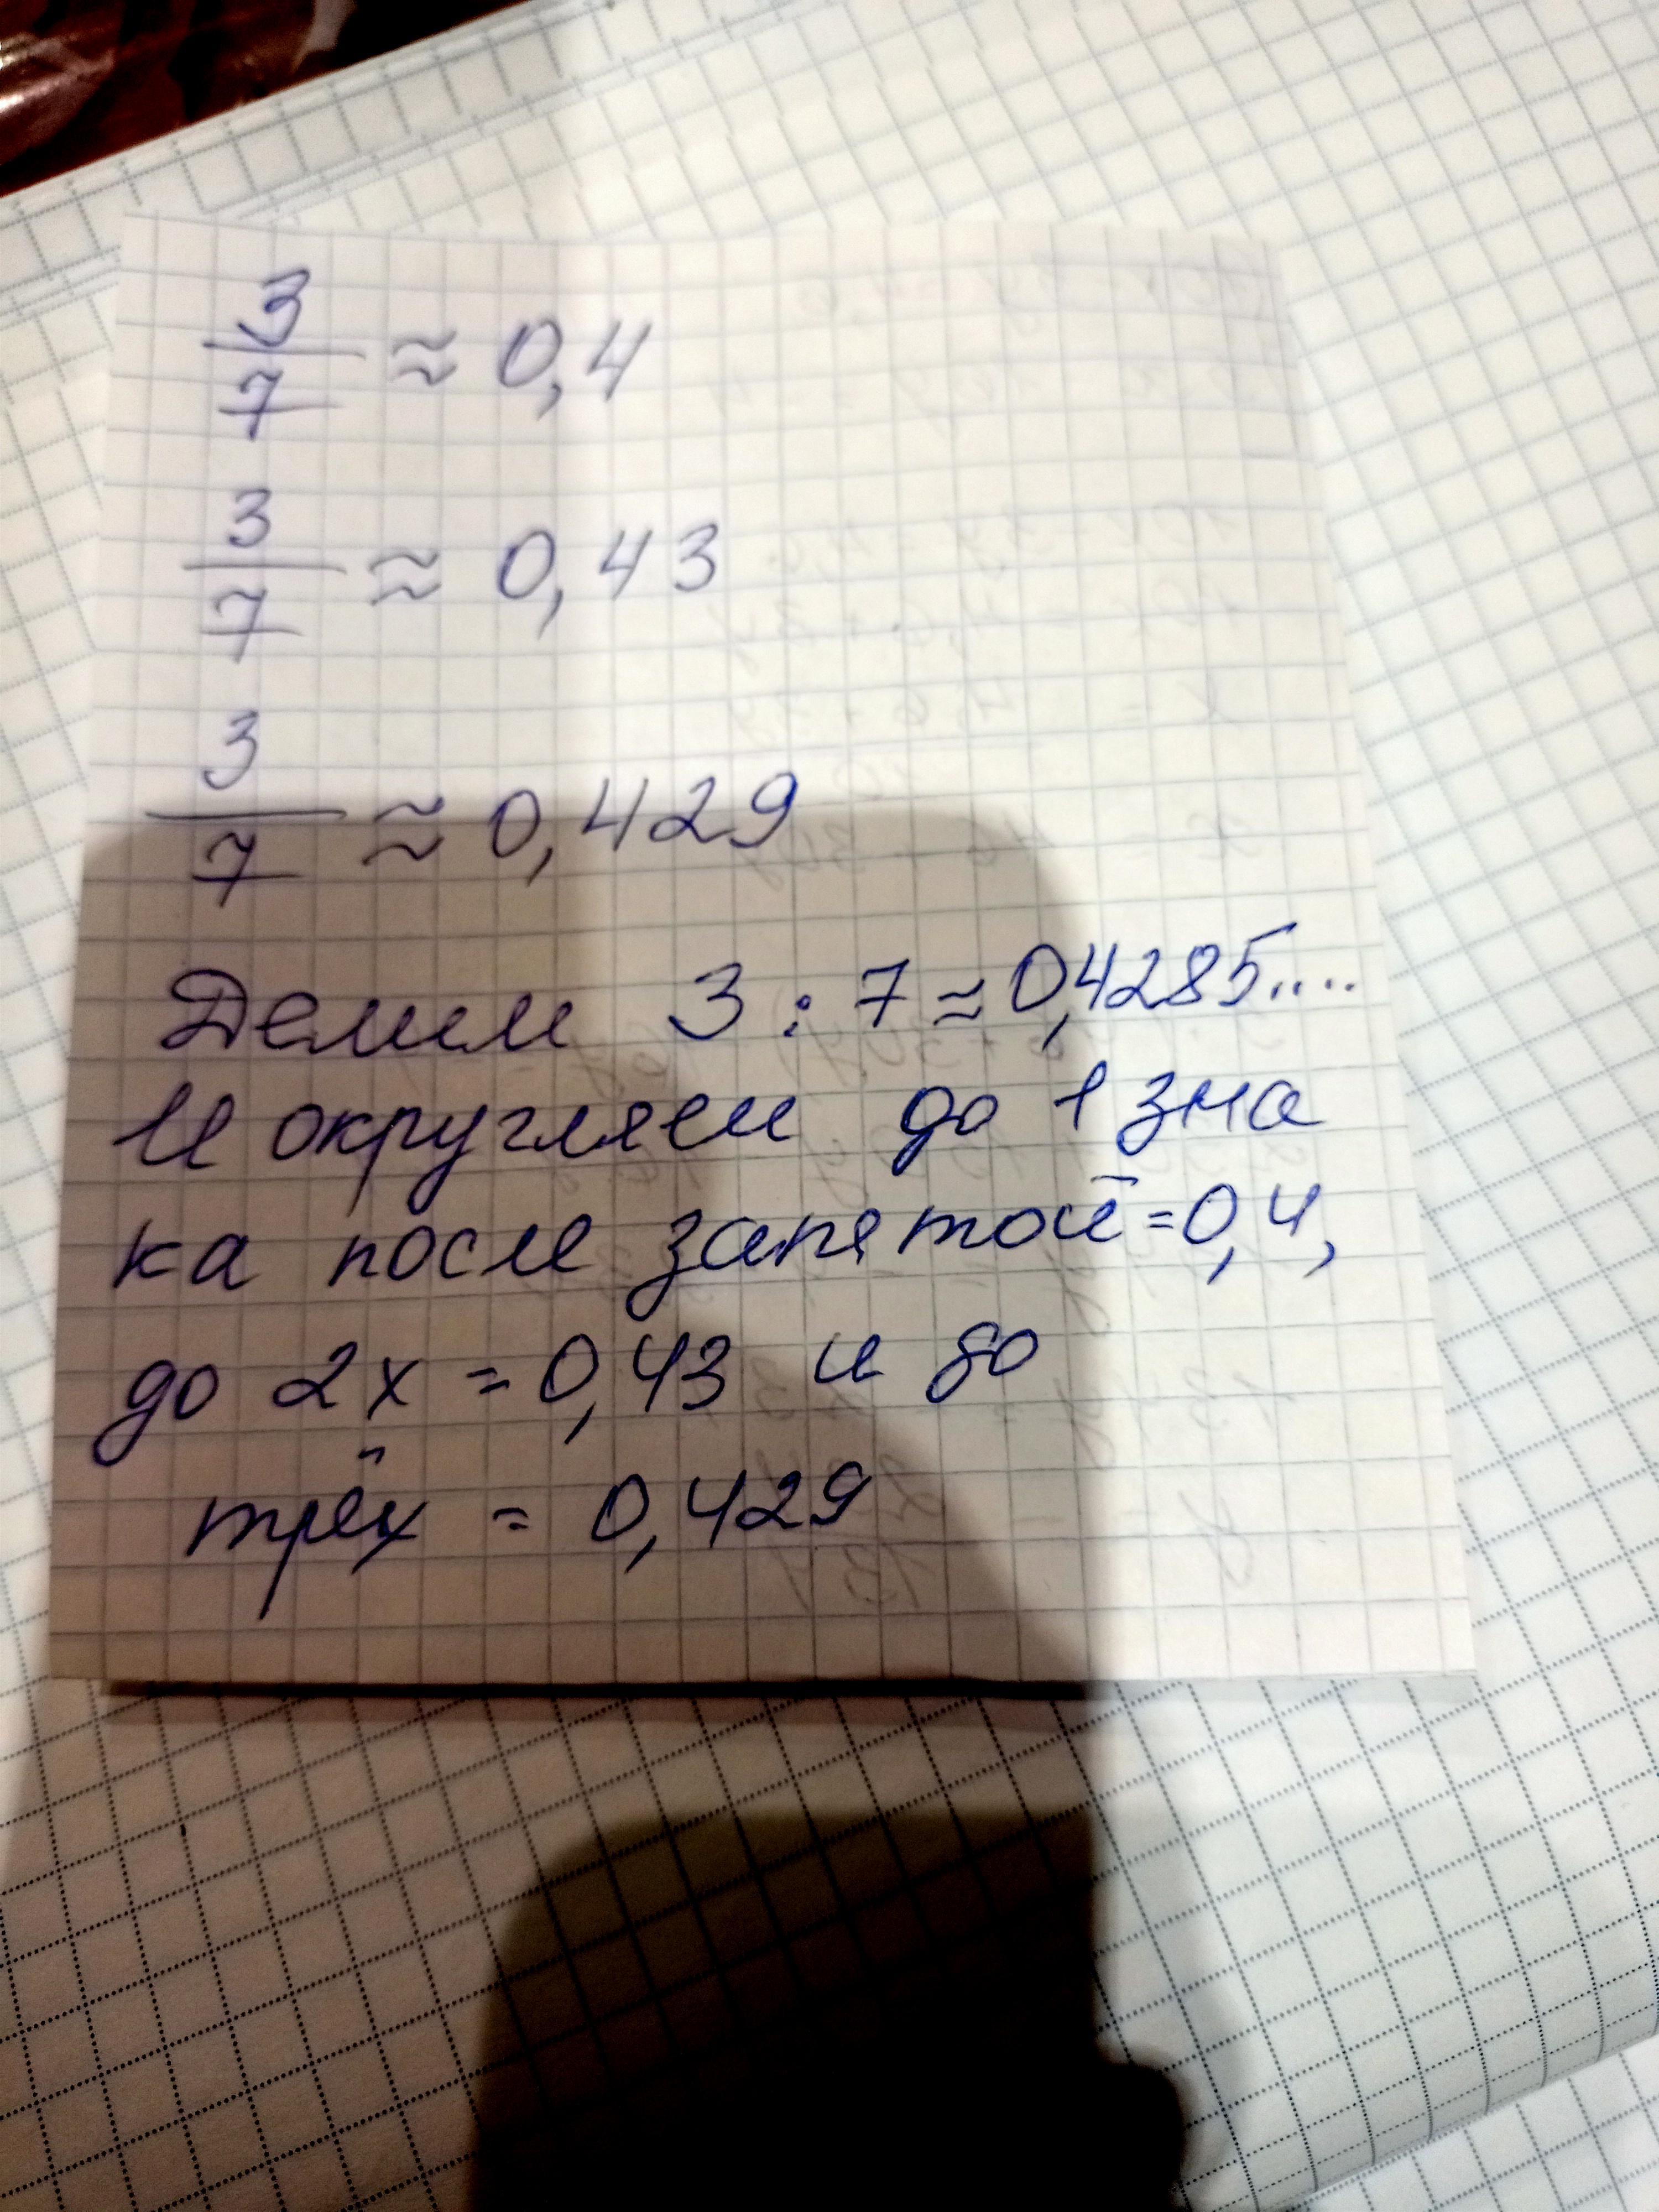 3/7 ≈ 0,4
3/7 ≈ 0,43
3/7 ≈ 0,429
Делим 3 : 7 ≈ 0,4285....
И округляем до 1 зна
ка после запятой = 0,4,
до 2х = 0,43 и до
трёх = 0,429